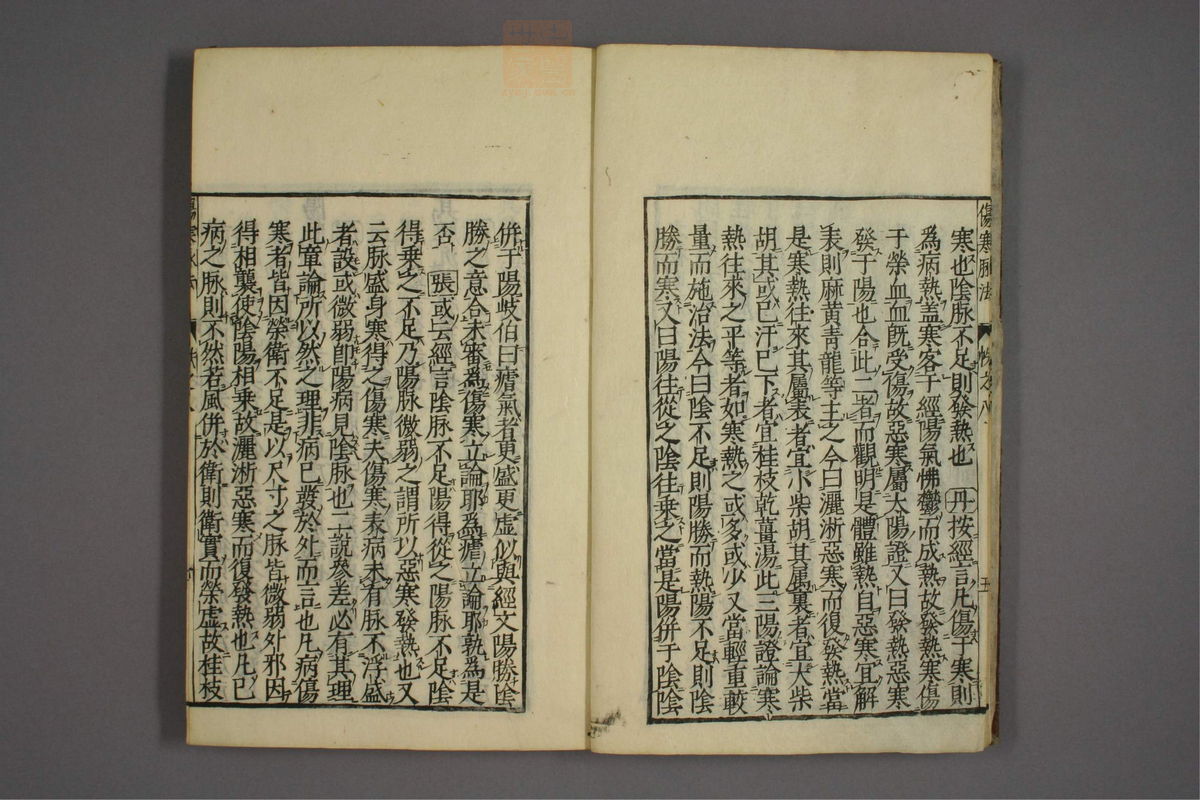 寒也陰脉不足則發熱也 丹按經言凡傷于寒則
爲病熱蓋寒客于經陽氣怫鬱而成熱故發熱寒傷
于榮血血旣受傷故惡寒屬太陽證又曰發熱惡寒
發于陽也合此二者而觀明是體雖熱自惡寒宜解
表則麻黃青龍等主之今曰灑淅惡寒而復發熱當
是寒熱往來其屬表者宜小柴胡其属裏者宜大柴
胡其或已汗已下者宜桂枝乾薑湯此三陽證論寒
熱往來之平等者如寒熱之或多或少又當輕重較
量而施治法今曰陰不足則陽勝而熱陽不足則陰
勝而寒又曰陽往從之陰往乗之當是陽併于陰陰
傷寒脉法
五
併于陽歧伯曰瘧氣者更盛更虚似與經文陽勝陰
勝之意合未審爲傷寒立論耶爲瘧立論耶孰爲是
否 張或云經言陰脉不足陽得從之陽脉不足陰
得乗之不足乃陽脉微弱之謂所以惡寒發熱也又
云脉盛身寒得之傷寒夫傷寒表病未有脉不浮盛
者設或微弱卽陽病見陰脉也二說參差必有其理
此章論所以然之理非病已發於外而言也凡病傷
寒者皆因榮衛不足是以尺寸之脉皆微弱外邪因
得相襲使陰陽相乗故灑淅惡寒而復發熱也凡已
病之脉則不然若風併於衛則衛實而榮虚故桂枝